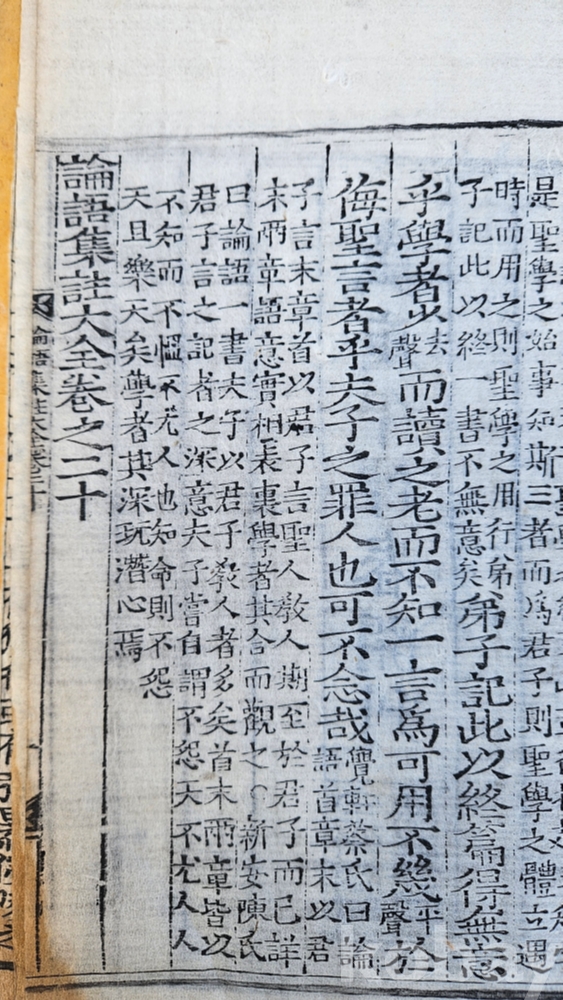 是聖學之始事知斯三者而為君子則聖學之體立遇
時而用之則聖學之用行弟
子記此以終一書不無意矣
弟子記此以終篇得無意
乎學者少去聲而讀之老而不知一言為可用不幾平聲於
侮聖言者乎夫子之罪人也可不念哉
覺軒蔡氏曰論
語首章末以君
子言末章首以君子言聖人教人期至於君子而已詳
末兩章語意實相表裏學者其合而觀之○新安陳氏
曰論語一書夫子以君子教人者多矣首末兩章皆以
君子言之記者之深意夫子嘗自謂不怨天不尤人人
不知而不慍不尤人也知命則不怨
天且樂天矣學者其深玩潛心焉
論語集註大全卷之二十
論語集註大全卷二十